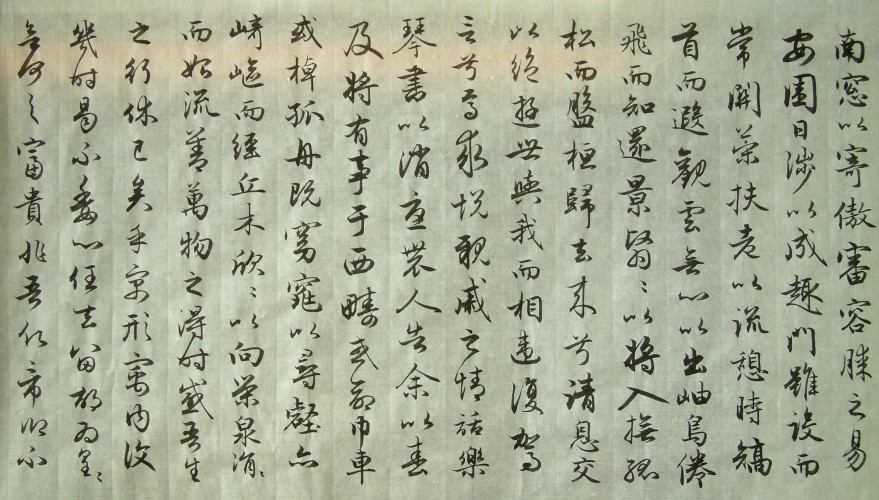 南窓以寄傲審容膝之易
安園日涉以成趣門雖設而
常關策扶老以流憩時矯
首而遐觀雲無心以出岫鳥倦
飛而知還景翳〻以將入撫孤
松而盤桓歸去来兮請息交
以絕遊世與我而相違復駕
言兮焉求悅親戚之情話樂
琴書以消憂農人告余以春
及將有事于西疇或命巾車
或棹孤舟既窈窕以尋壑亦
崎嶇而經丘木欣〻以向榮泉涓〻
而始流善萬物之得時感吾生
之行休已矣乎寓形宇内復
幾時曷不委心任去留胡為遑〻
何之富貴非吾願帝鄉不